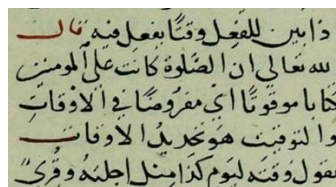 ذا بين للفعل وقتًا يفعل فيه قال
لله تعالى ان الصّلوة كانت على المومنين
كتابا موقوتًا اي مفروضًا في الاوقات
والتوقيت هو تحديد الاوقات
تقول وقته ليوم كذا مثل اجلته وقرئ